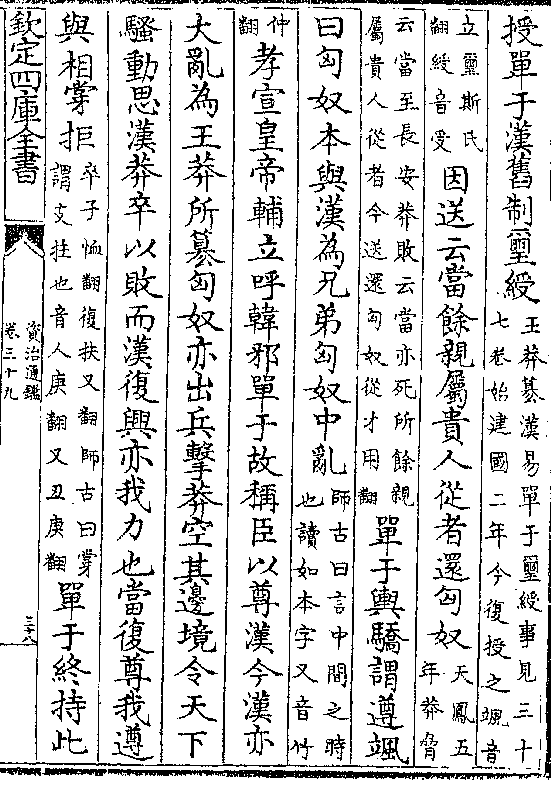 授單于漢舊制璽綬
王莽篡漢易單于璽綬事見三十
七卷始建國二年今復授之颯音
立璽斯氏
翻綬音受
因送云當餘親屬貴人從者還匈奴
天鳳五
年莽脅
云當至長安莽敗云當亦死所餘親
屬貴人從者今送還匈奴從才用翻
單于輿驕謂遵颯
曰匈奴本與漢為兄弟匈奴中亂
師古曰言中間之時
也讀如本字又音竹
仲
翻
孝宣皇帝輔立呼韓邪單于故稱臣以尊漢今漢亦
大亂為王莽所篡匈奴亦出兵擊莽空其邊境令天下
騷動思漢莽卒以敗而漢復興亦我力也當復尊我遵
與相牚拒
卒子恤翻復扶又翻師古曰牚
謂支拄也音人庚翻又丑庚翻
單于終持此
欽定四庫全書
資治通鑑
卷三十九
三十八